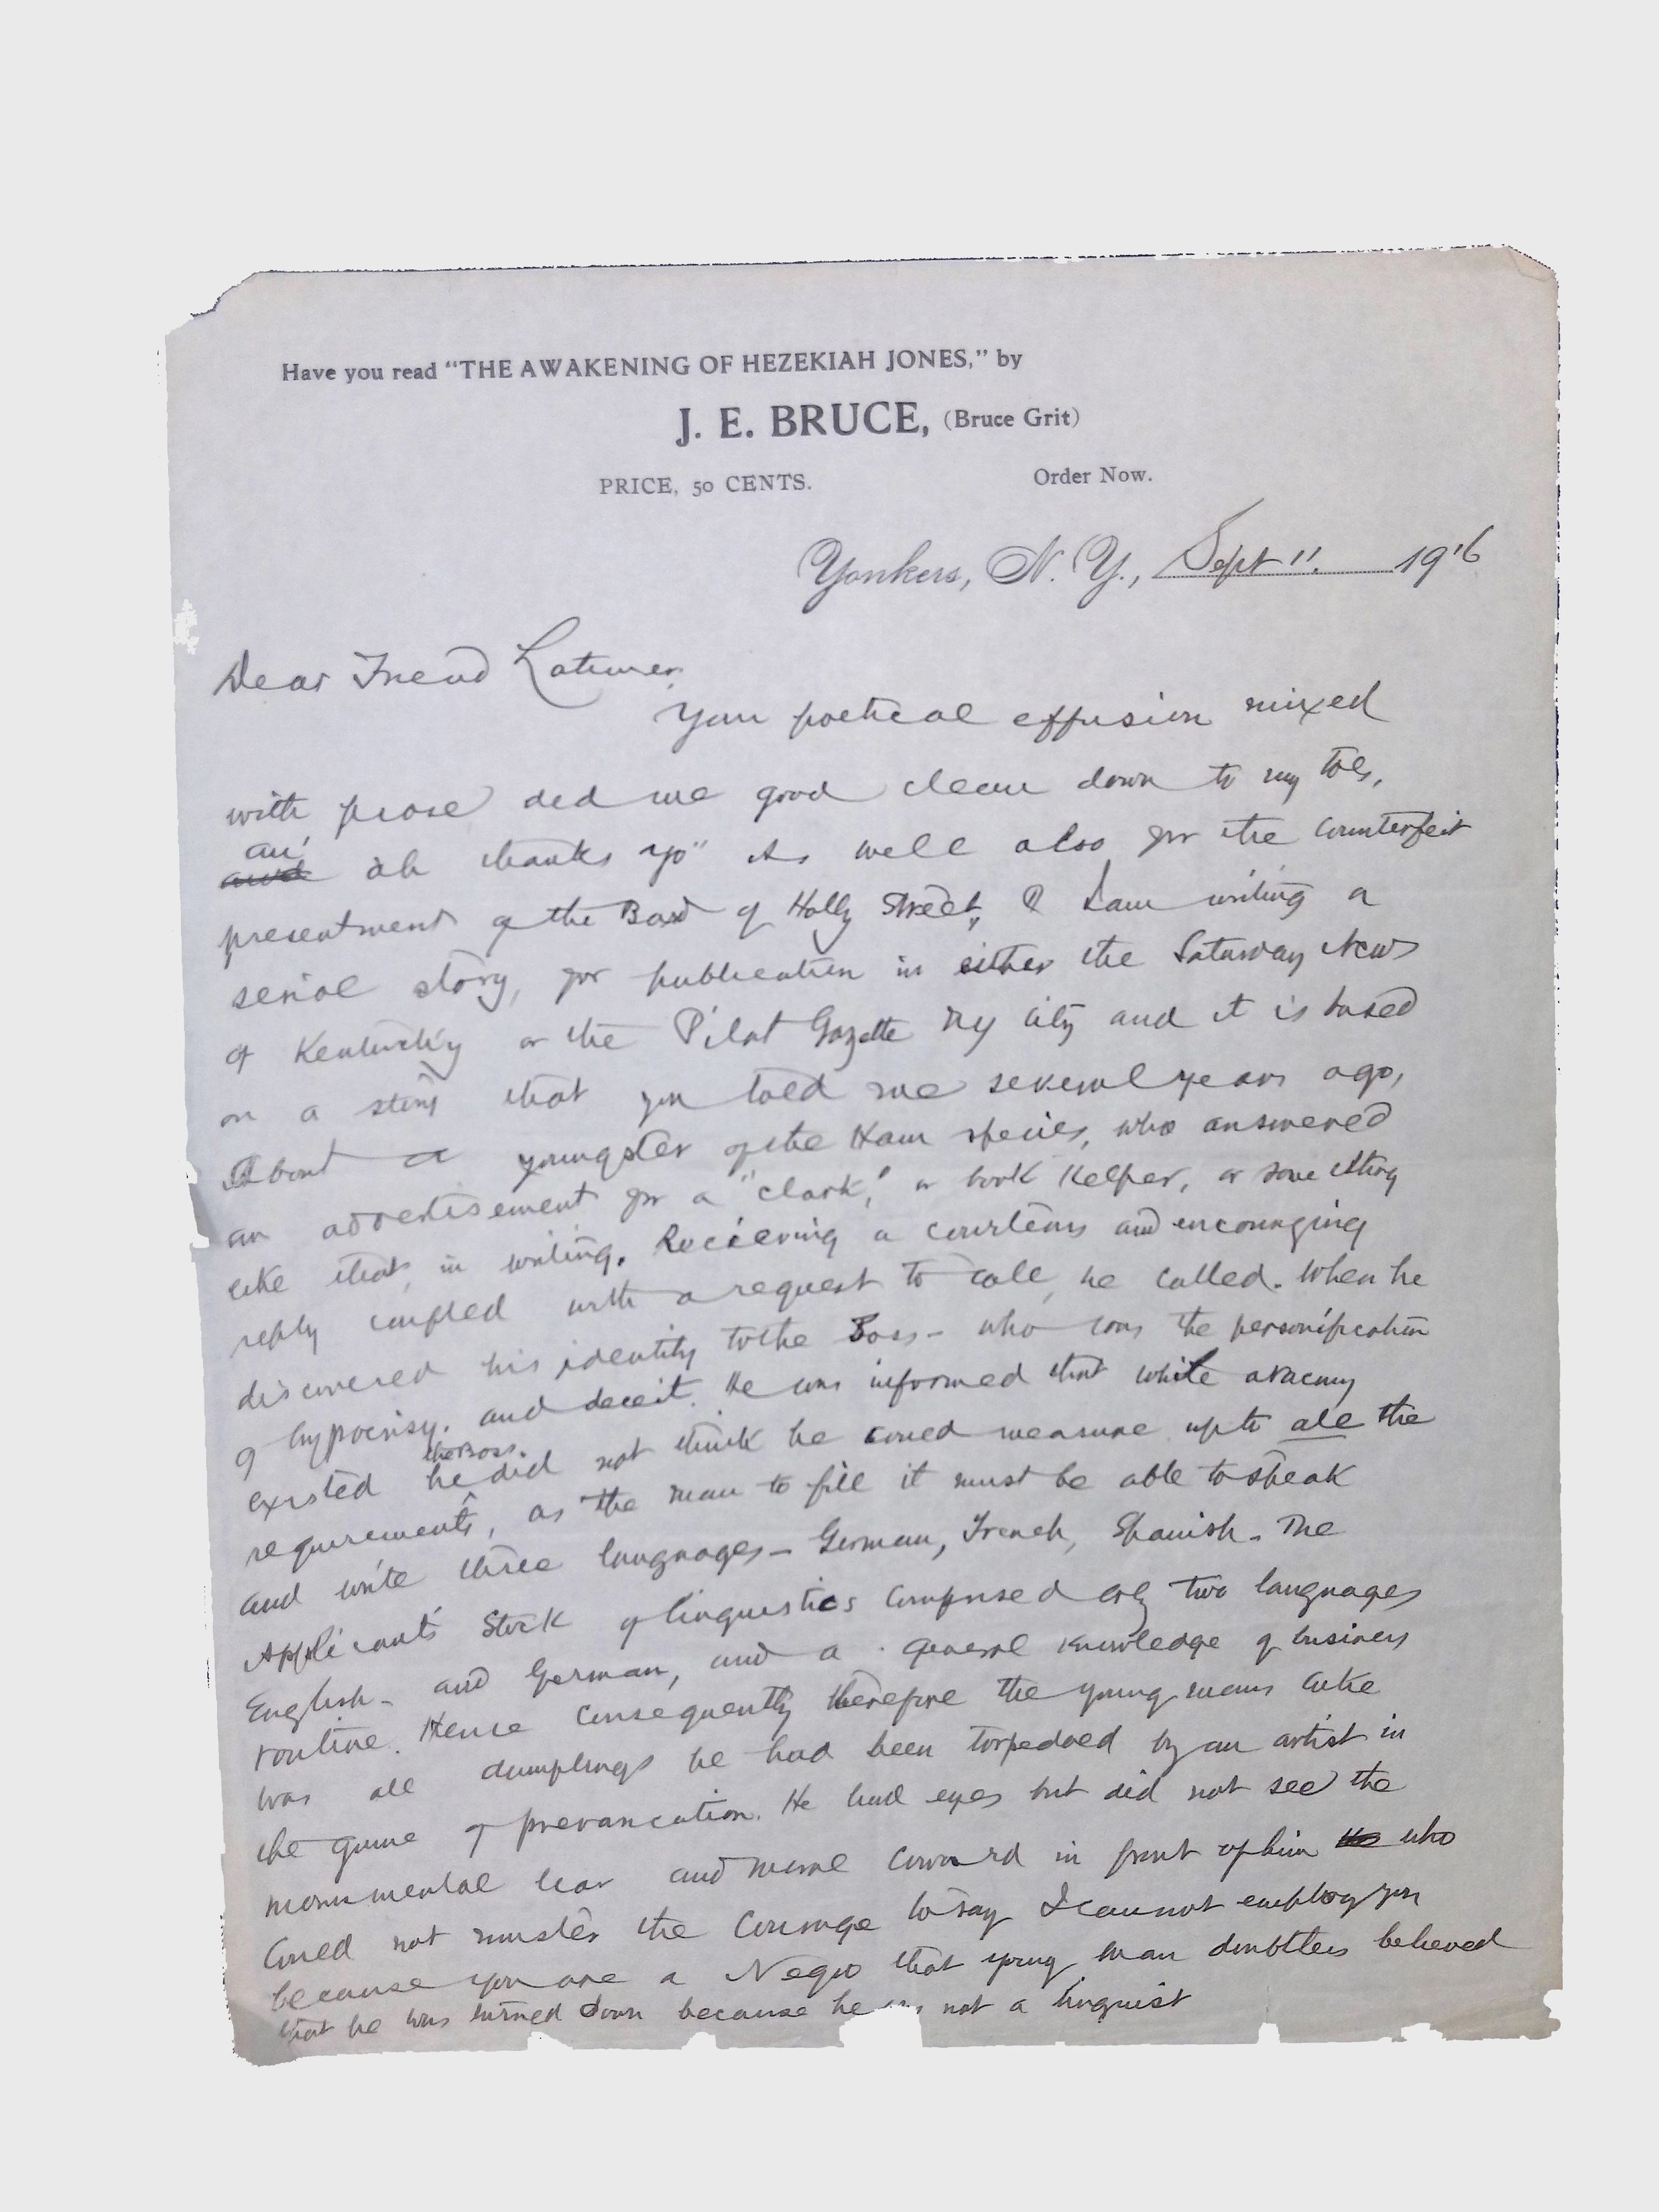 Have you read "THE AWAKENING OF HEZEKIAH JONES," by
J. E. BRUCE, (Bruce Grit)
PRICE, 50 CENTS. Order Now.
Yonkers, N. Y., Sept 11. 19'16
Dear Friend Latimer
Your poetical effusion mixed
with prose did me good clean down to my toes,
an' and ah thanks yo" As well also for the counterfeit
presentment of the Bard of Holly Street, I am writing a
serial story, for publication in either the Saturday News
of Kentucky or the Pilot Gazette NY City and it is based
on a story that you told me several years ago,
About a youngster of the Ham species, who answered
an advertisement for a "clark", or book Kelper, or some thing
like that, in writing. Recieving a courteous and encouraging
reply coupled with a request to call, he called. When he
discovered his identity to the Boss - who was the personification
of hypocrisy. and deceit. He was informed that while a vacancy
existed he the Boss. did not think he could measure up to all the
requirements, as the man to fill it must be able to speak
and write three languages - German, French, Spanish - The
Applicant's Stock of linguistics comprised only two languages
English - and German, and a general knowledge of business
routine. Hence consequently therefore the young mans cake
was all dumplings he had been torpedoed by an artist in
the game of prevarication. He had eyes but did not see the
monumental liar and moral coward in front of him who
could not muster the courage to say I cannot employ you
because you are a Negro that young man doubtless believed
that he was turned down because he was not a linguist